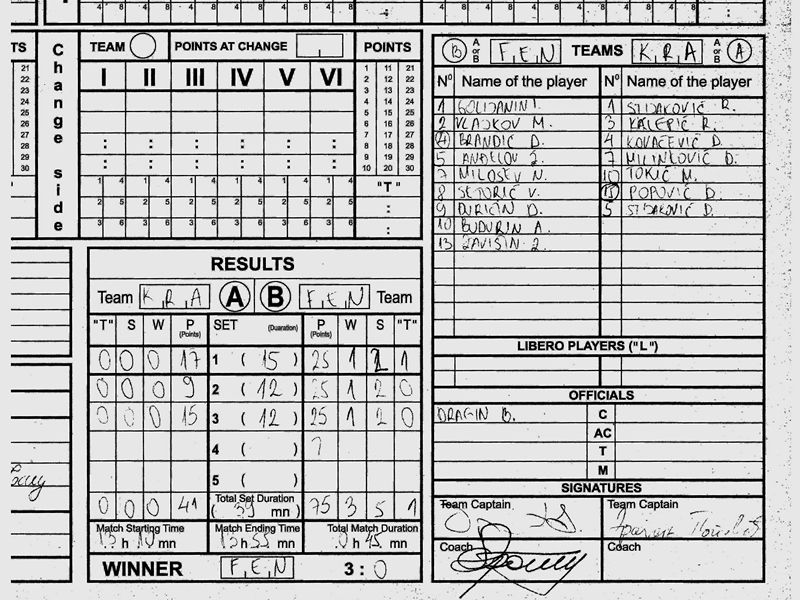 TS
Change side
TEAM
POINTS AT CHANGE
POINTS
I II III IV V VI
1 11 21
2 12 22
3 13 23
4 14 24
5 15 25
6 16 26
7 17 27
8 18 28
9 19 29
10 20 30
21
22
23
24
25
26
27
28
29
30
"T"
1 4 1 4 1 4 1 4 1 4 1 4
2 5 2 5 2 5 2 5 2 5 2 5
3 6 3 6 3 6 3 6 3 6 3 6
B A or B F,E,N TEAMS K,R,A A or B A
Nº Name of the player Nº Name of the player
1 GOLIJANIN I. 1 STIJAKOVIĆ R.
2 VLAJKOV M. 3 KALEPIĆ R.
4 BRANDIĆ D. 4 KOVAČEVIĆ D.
5 ANĐELOV 7 MILINKOVIĆ D.
7 MILOŠEV N. 10 TOKIĆ M.
8 SETORIĆ V. POPOVIĆ D.
9 ĐURIČIN D. 5 STIJAKOVIĆ D.
10 BUDURIN A.
13
LIBERO PLAYERS ("L")
OFFICIALS
DRAGIN B. C
AC
T
M
SIGNATURES
Team Captain Team Captain
Coach Coach
RESULTS
Team K,R,A A B F,E,N Team
"T" S W P (Points) SET (Duration) P (Points) W S "T"
0 0 0 17 1 ( 15 ) 25 1 2 1
0 0 0 9 2 ( 12 ) 25 1 2 0
0 0 0 15 3 ( 12 ) 25 1 2 0
4 ( )
5 ( )
Total Set Duration
0 0 0 41 ( 39 mn ) 75 3 5 1
Match Starting Time Match Ending Time Total Match Duration
h mn h mn 0 h 45 mn
WINNER F,E,N 3 : 0